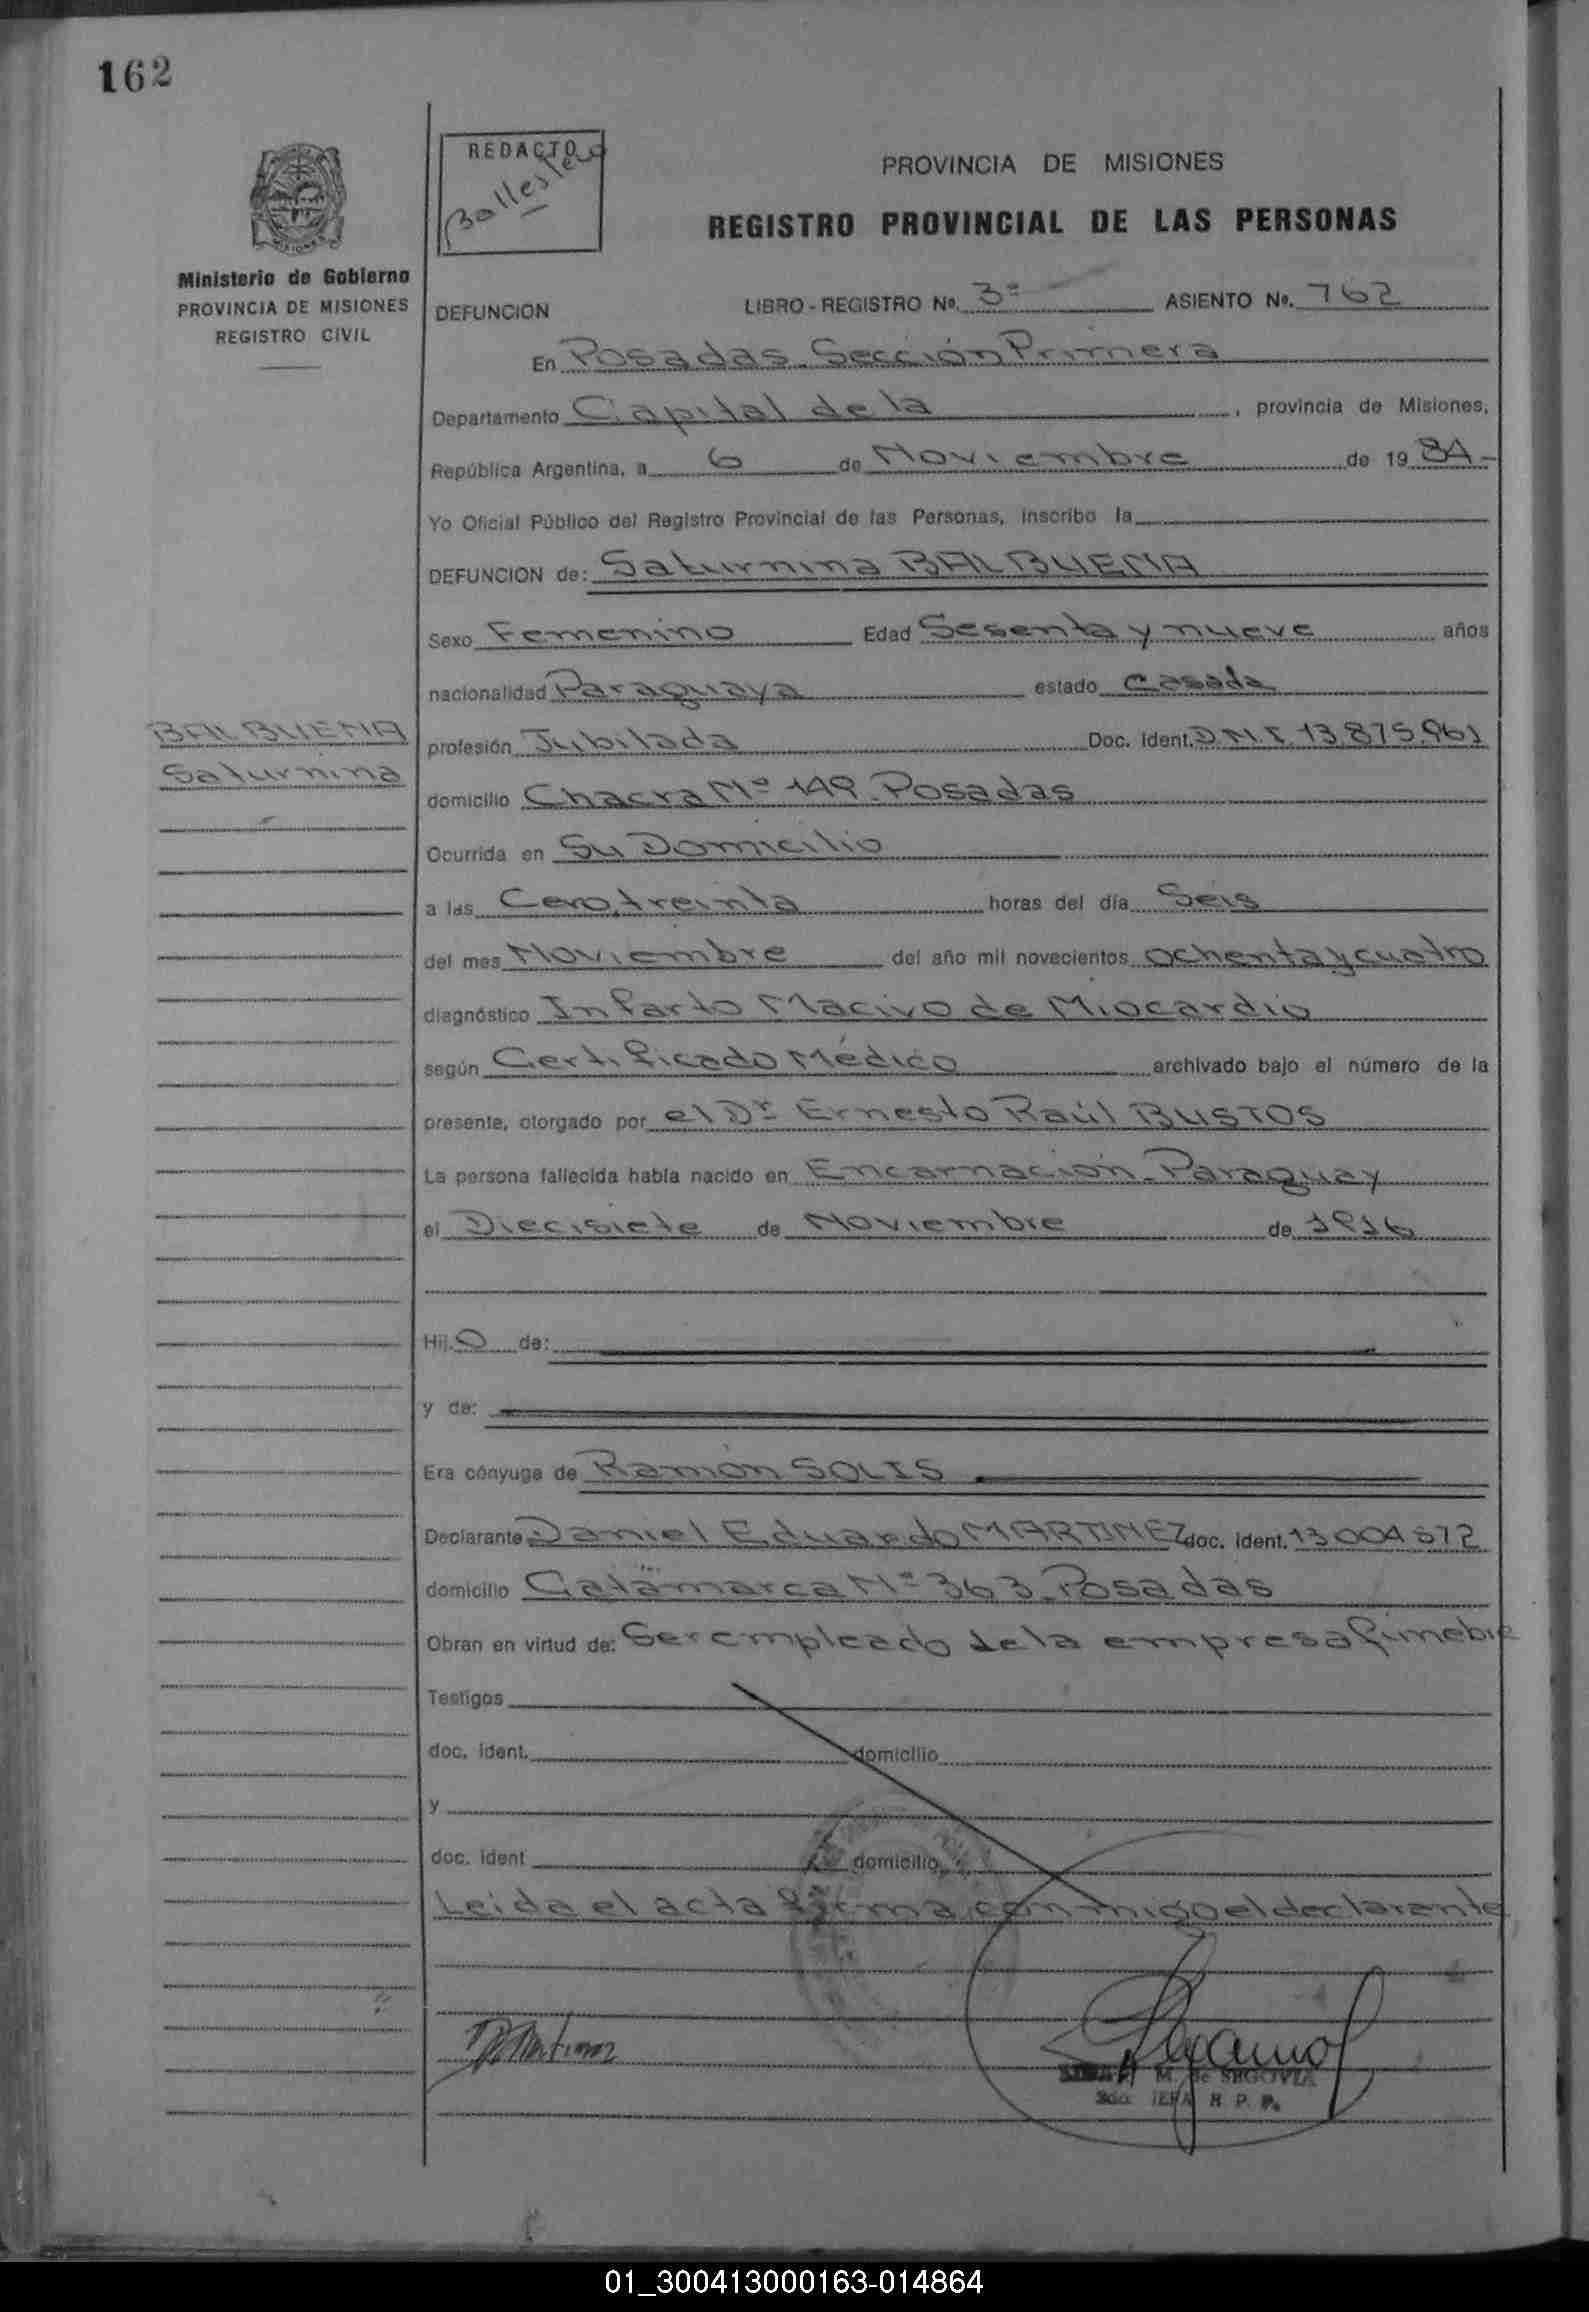 162
REDACTO
Ballestero
PROVINCIA DE MISIONES
REGISTRO PROVINCIAL DE LAS PERSONAS
MISIONES
Ministerio de Gobierno
PROVINCIA DE MISIONES
REGISTRO CIVIL
DEFUNCION LIBRO - REGISTRO Nº. 3º ASIENTO Nº. 762
En Posadas. Sección Primera
Departamento Capital de la, provincia de Misiones,
República Argentina, a 6 de Noviembre de 1984-
Yo Oficial Público del Registro Provincial de las Personas, inscribo la
DEFUNCION de: Saturnina BALBUENA
Sexo Femenino Edad Sesenta y nueve años
nacionalidad Paraguaya estado Casada
BALBUENA
Saturnina
profesión Jubilada Doc. Ident. D.N.I. 13.875.961
domicilio Chacra Nº 149. Posadas
Ocurrida en Su Domicilio
a las Cero, treinta horas del día Seis
del mes Noviembre del año mil novecientos ochenta y cuatro
diagnóstico Infarto Macivo de Miocardio
según Certificado Médico archivado bajo el número de la
presente, otorgado por el Dr Ernesto Raúl BUSTOS
La persona fallecida había nacido en Encarnación. Paraguay
el Diecisiete de Noviembre de 1916
Hij.o de:
y de:
Era cónyuge de Ramón SOLIS
Declarante Daniel Eduardo MARTINEZ doc. ident. 13004572
domicilio Catamarca Nº 363. Posadas
Obran en virtud de: Ser empleado de la empresa fúnebre
Testigos
doc. ident. domicilio
y
doc. ident domicilio
Leida el acta firma conmigo el declarante
DMartinez
M. de SEGOVIA
JEFA R. P. P.
01_300413000163-014864